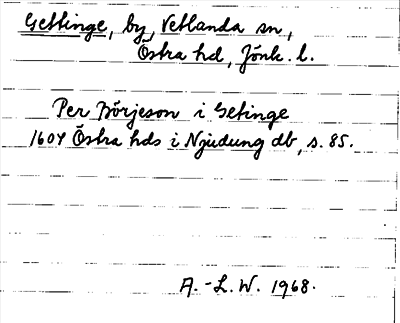 Gettinge, by, Vetlanda sn,
Östra hd, Jönk. l.
Per Börjeson i Getinge
1604 Östra hds i Njudung db, s. 85.
A.-L. W. 1968.